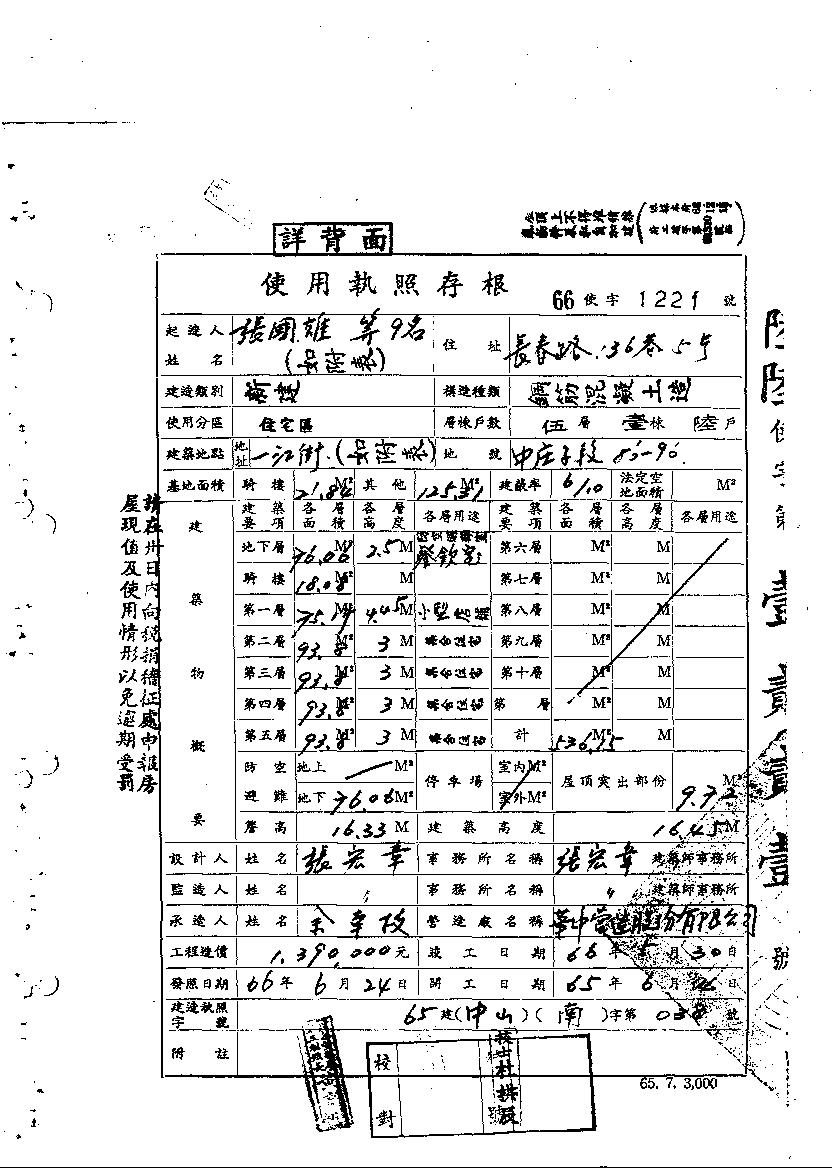 詳背面
使用執照存根
66 使字 1221 號
起造人姓名 張國雄 等9名 (如附表) 住址 長春路136巷5号
建造類別 新建 構造種類 鋼筋混凝土造
使用分區 住宅區 層棟戶數 伍層 壹棟 陸戶
建築地點 地址 一江街(如附表) 地號 中庄子段
基地面積 騎樓 21.84 M² 其他 125.31 M² 建蔽率 6/10 法定空地面積 M²
建築物概要
建築要項 各層面積 各層高度 各層用途 建築要項 各層面積 各層高度 各層用途
地下層 76.06 M² 2.5 M 第六層 M² M
騎樓 18.08 M² M 第七層 M² M
第一層 75.14 M² 4.45 M 小型店舖 第八層 M² M
第二層 93.8 M² 3 M 集合住宅 第九層 M² M
第三層 93.8 M² 3 M 集合住宅 第十層 M² M
第四層 93.8 M² 3 M 集合住宅 第 層 M² M
第五層 93.8 M² 3 M 集合住宅 計 M² M
防空避難 地上 M² 地下 76.06 M² 停車場 室內 M² 室外 M² 屋頂突出部份 9.72 M²
簷高 16.33 M 建築高度 16.45 M
設計人 姓名 張宏章 事務所名稱 張宏章 建築師事務所
監造人 姓名 〃 事務所名稱 〃 建築師事務所
承造人 姓名 營造廠名稱 華中營造股份有限公司
工程造價 1,390,000元 竣工日期 66年 月30日
發照日期 66年6月24日 開工日期 65年6月 日
建造執照字號 65建(中山)(南)字第 號
附註
校對
65. 7. 3,000
請在卅日內向稅捐稽征處申報房
屋現值及使用情形以免逾期受罰
使字第
壹貳貳壹
號